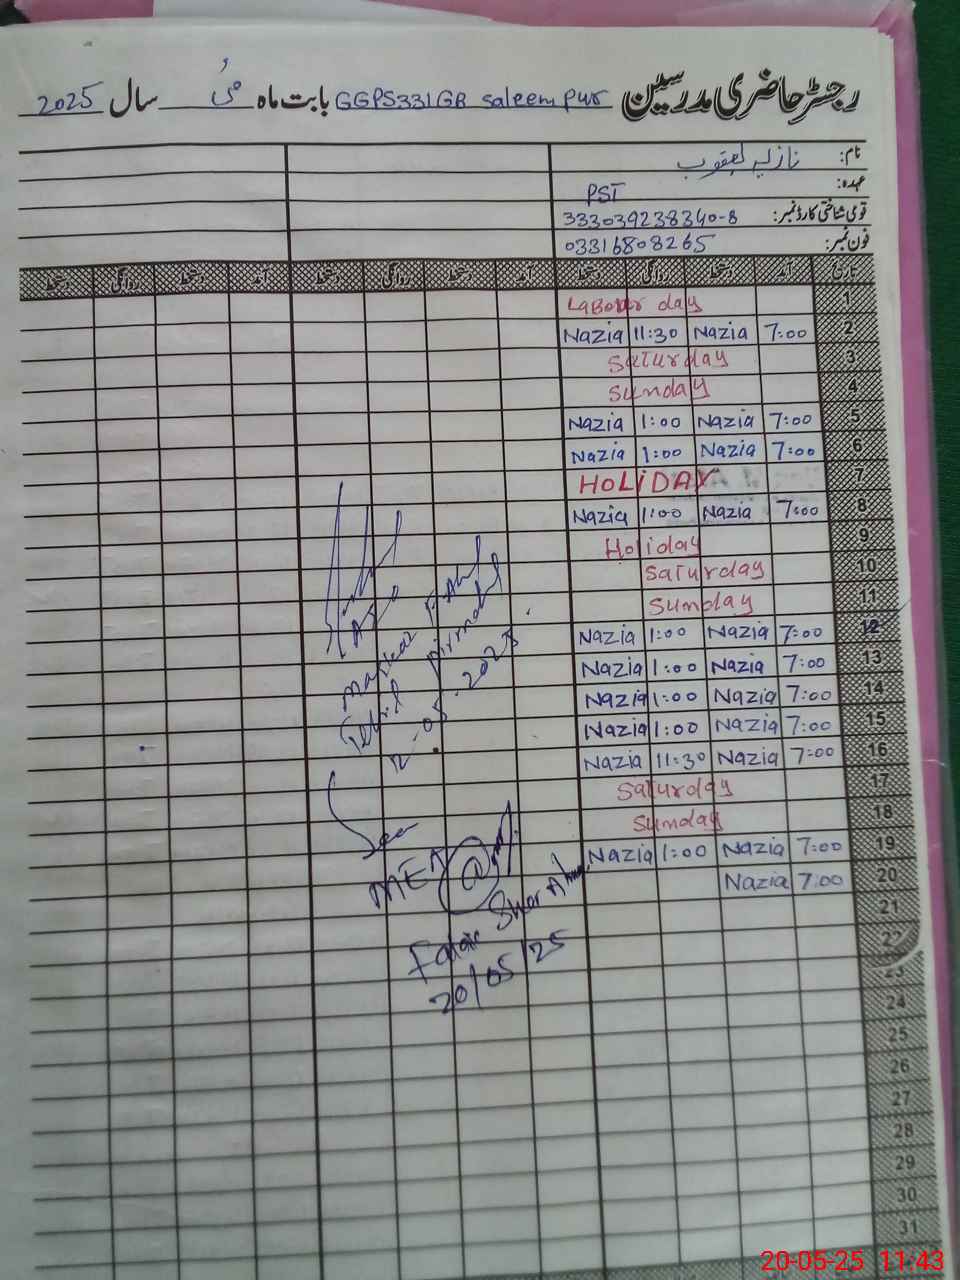 رجسٹر حاضری مدرسین GGPS331GB Saleem pur بابت ماہ مئی سال 2025
نام: نازیہ یعقوب
عہدہ: PST
قومی شناختی کارڈ نمبر: 333039238340-8
فون نمبر: 03316808265
تاریخ آمد دستخط روانگی دستخط آمد دستخط روانگی دستخط آمد دستخط روانگی دستخط
1 Labour day
2 7:00 Nazia 11:30 Nazia
3 Saturday
4 Sunday
5 7:00 Nazia 1:00 Nazia
6 7:00 Nazia 1:00 Nazia
7 HOLiDAY
8 7:00 Nazia 1:00 Nazia
9 Holiday
10 Saturday
11 Sunday
12 7:00 Nazia 1:00 Nazia
13 7:00 Nazia 1:00 Nazia
14 7:00 Nazia 1:00 Nazia
15 7:00 Nazia 1:00 Nazia
16 7:00 Nazia 11:30 Nazia
17 Saturday
18 Sunday
19 7:00 Nazia 1:00 Nazia
20 7:00 Nazia
21
22
23
24
25
26
27
28
29
30
31
AEO
Pirmahal
05.2025
Seen
MEA
Sher
20/05/25
20-05-25 11:43